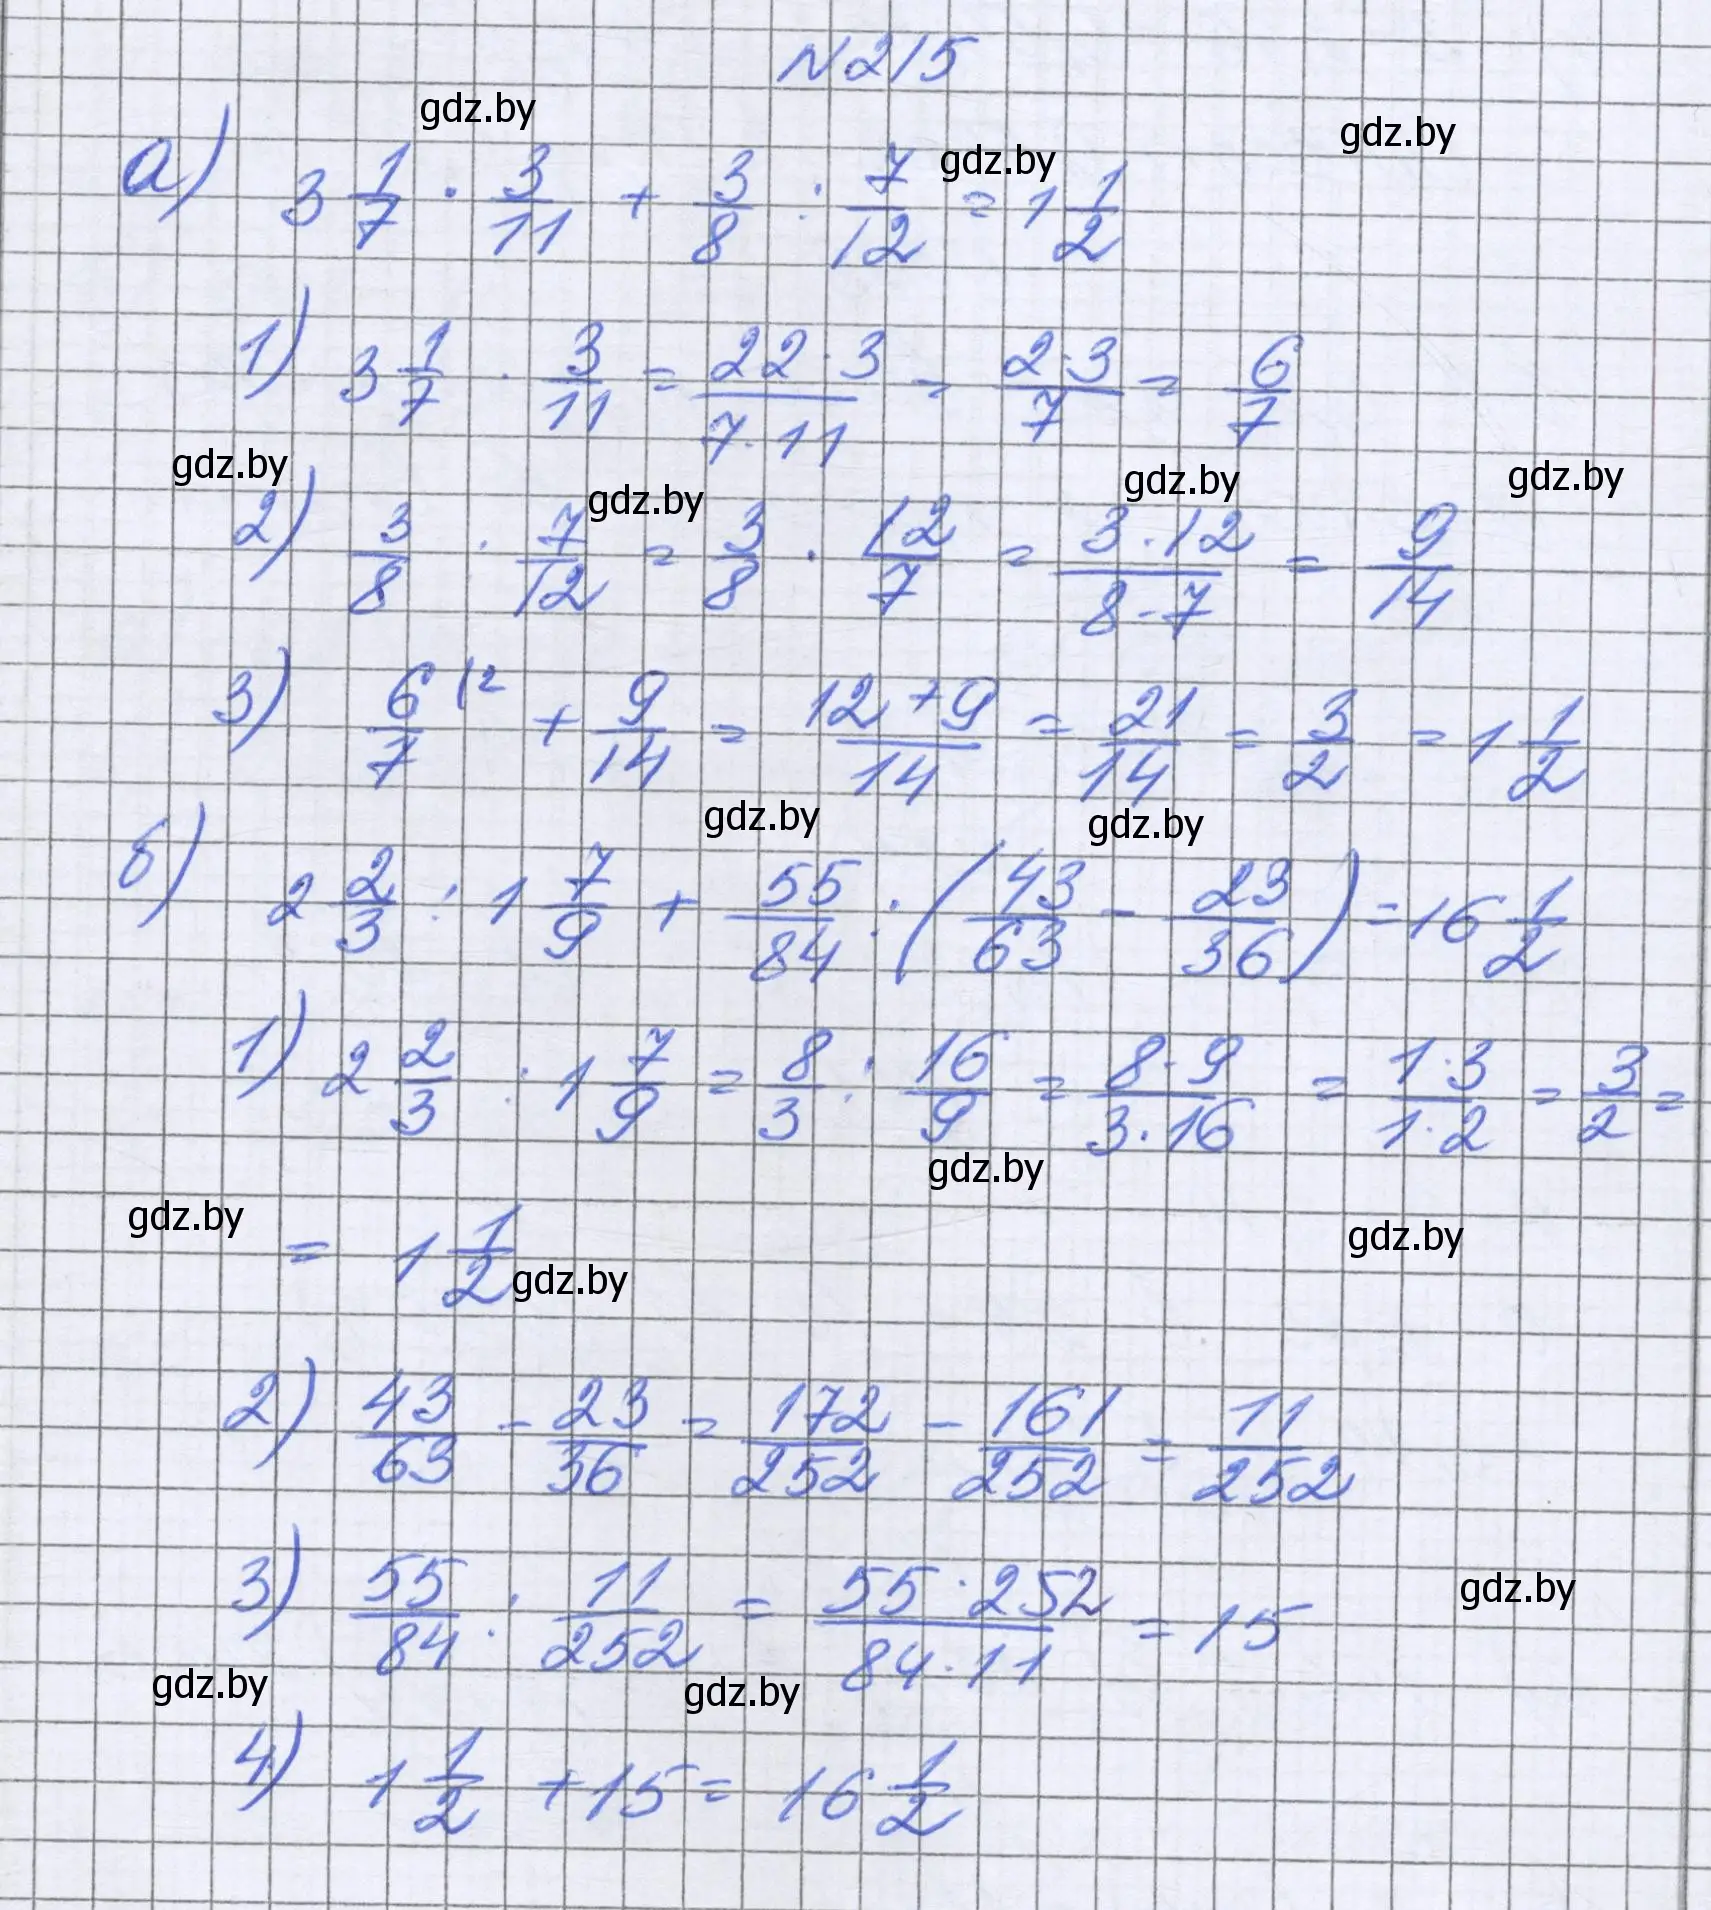 N215
gdz.by
gdz.by
gdz.by
а) 3 1/7 · 3/11 + 3/8 : 7/12 = 1 1/2
1) 3 1/7 · 3/11 = 22·3/7·11 = 2·3/7 = 6/7
gdz.by
gdz.by
gdz.by
gdz.by
2) 3/8 : 7/12 = 3/8 · 12/7 = 3·12/8·7 = 9/14
3) 6/7 (2 + 9/14 = 12+9/14 = 21/14 = 3/2 = 1 1/2
gdz.by
gdz.by
б) 2 2/3 : 1 7/9 + 55/84 : (43/63 - 23/36) = 16 1/2
1) 2 2/3 : 1 7/9 = 8/3 : 16/9 = 8·9/3·16 = 1·3/1·2 = 3/2 =
gdz.by
gdz.by
gdz.by
= 1 1/2
gdz.by
2) 43/63 - 23/36 = 172/252 - 161/252 = 11/252
3) 55/84 : 11/252 = 55·252/84·11 = 15
gdz.by
gdz.by
gdz.by
4) 1 1/2 + 15 = 16 1/2